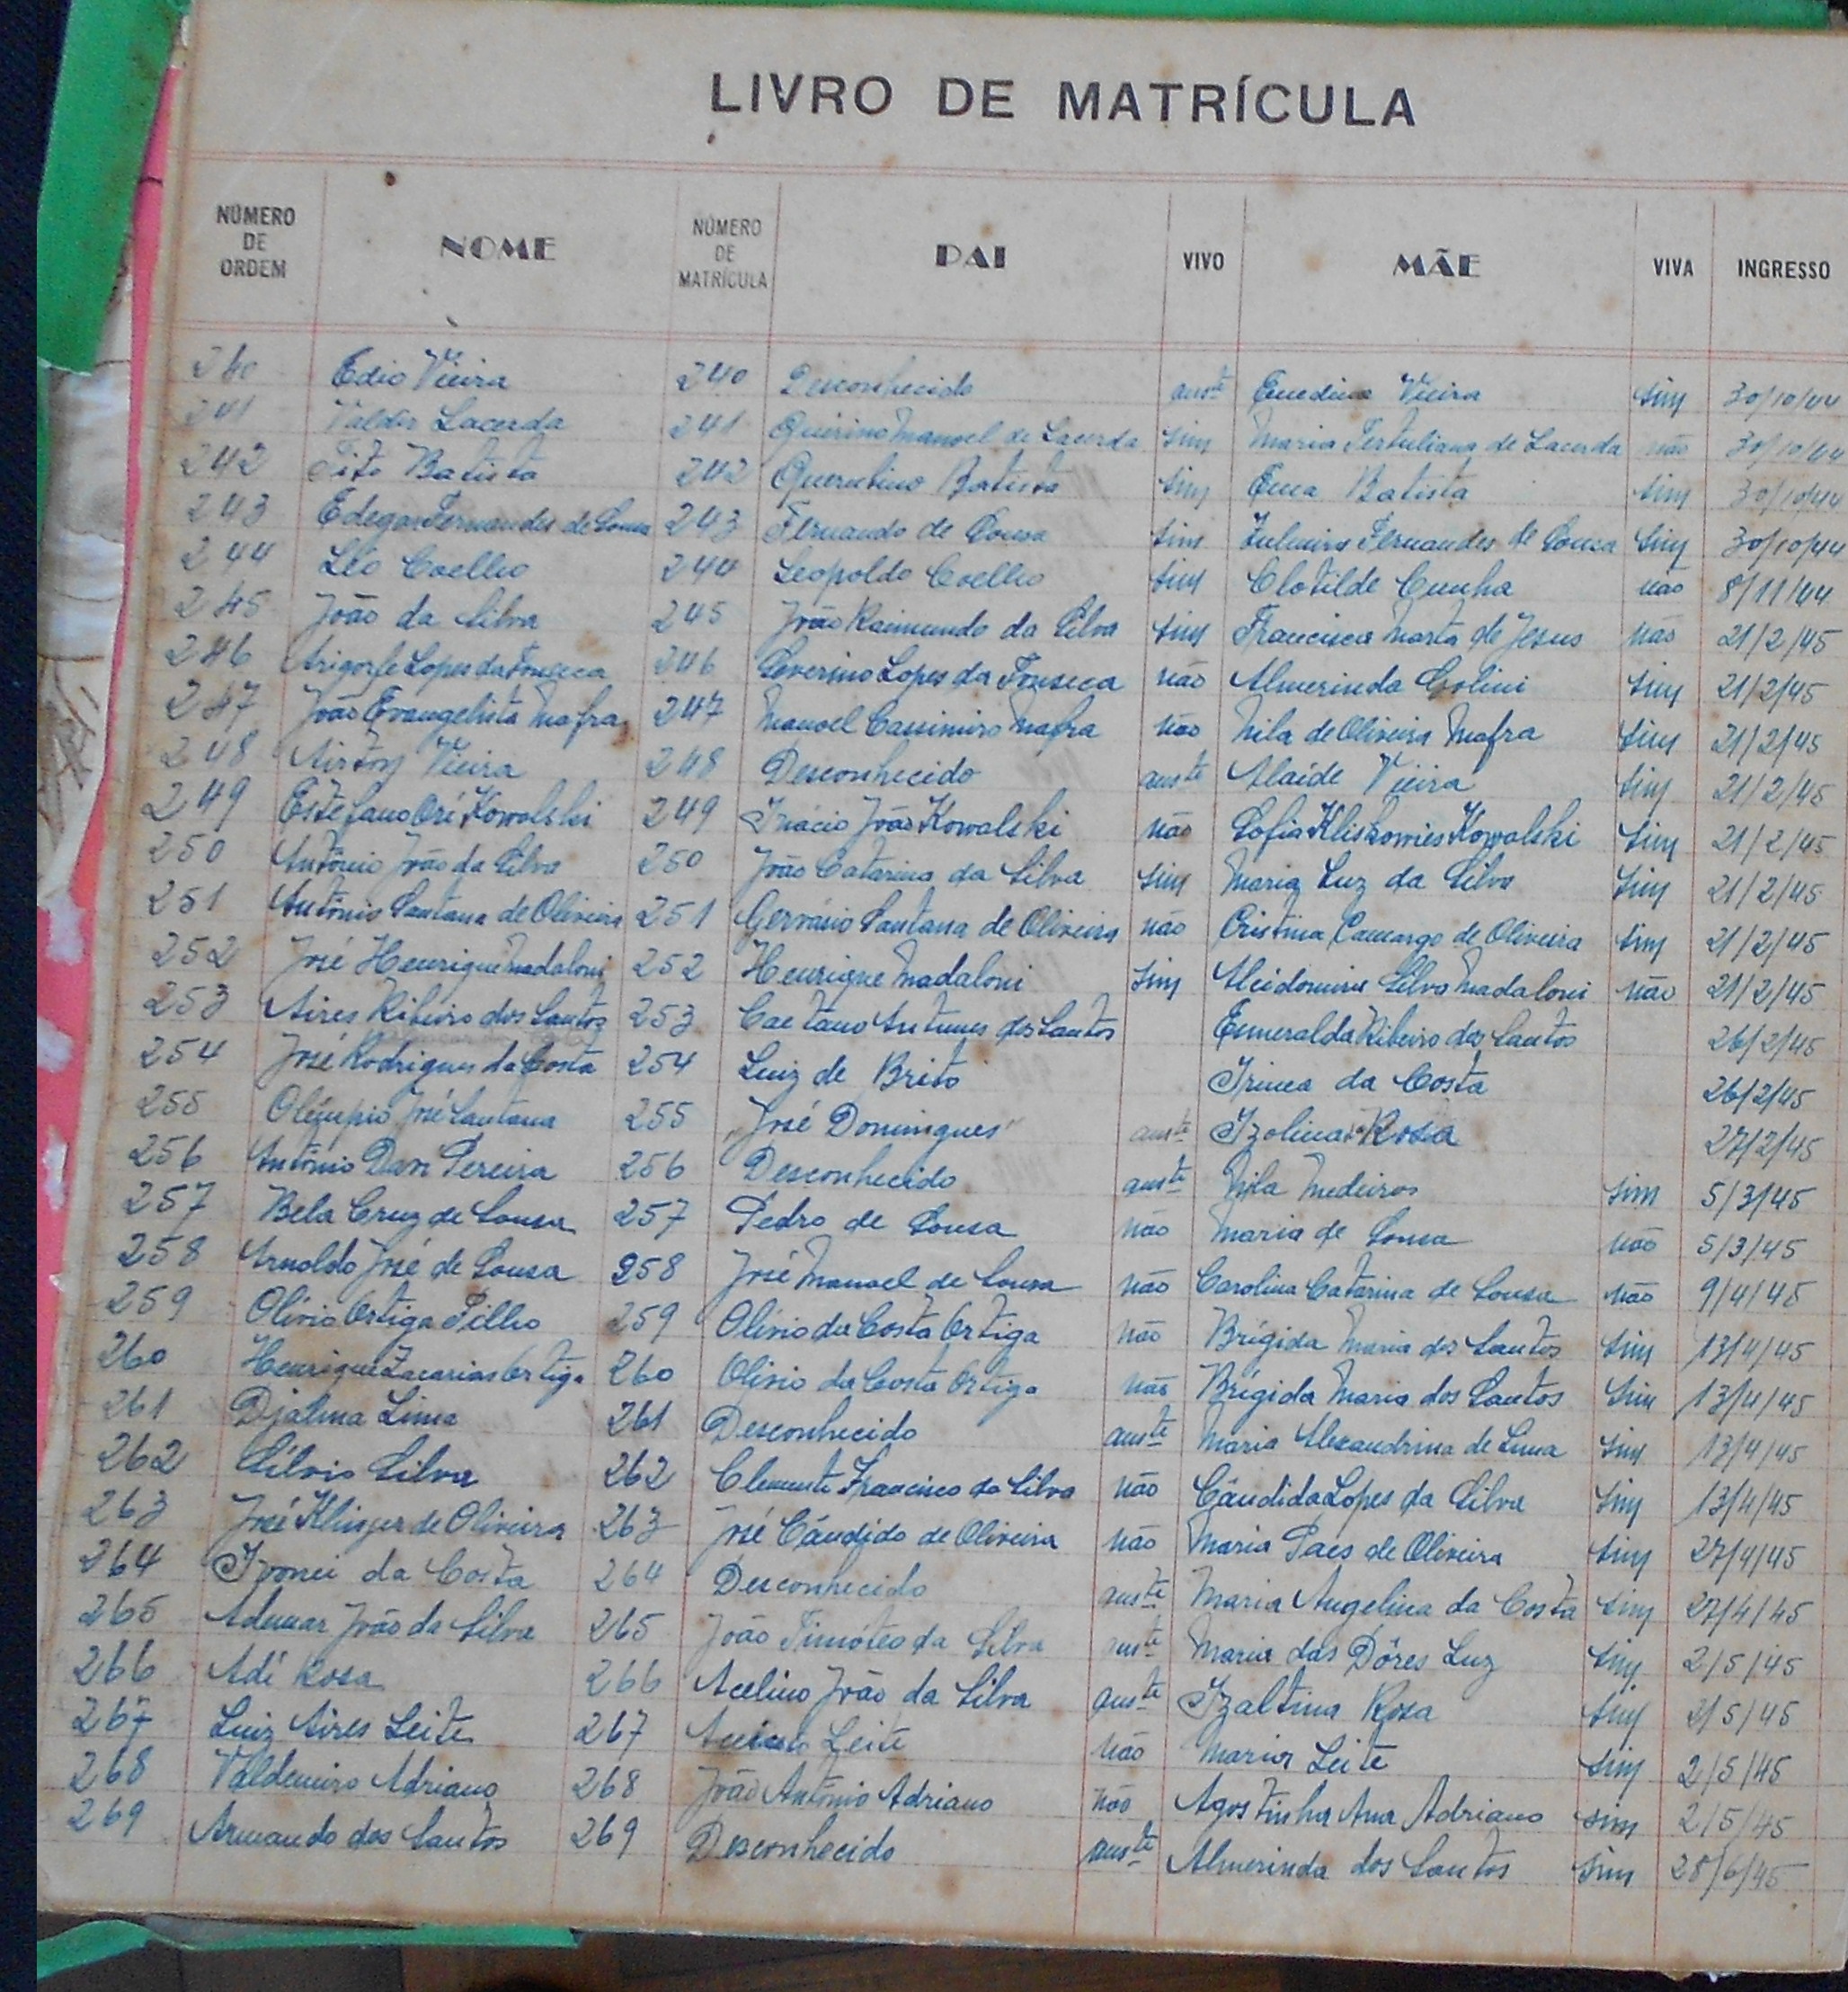 LIVRO DE MATRÍCULA
NÚMERO DE ORDEM NOME NÚMERO DE MATRÍCULA PAI VIVO MÃE VIVA INGRESSO
240 Edio Vieira 240 Desconhecido auste Enedina Vieira sim 30/10/44
241 Valdir Lacerda 241 Quirino Manoel de Lacerda sim Maria Tertuliana de Lacerda não 30/10/44
242 Tito Batista 242 Querubino Batista sim Ema Batista sim 30/10/44
243 Edegar Fernandes de Sousa 243 Fernando de Sousa sim Zulmira Fernandes de Sousa sim 30/10/44
244 Léo Coelho 244 Leopoldo Coelho sim Clotilde Cunha não 8/11/44
245 João da Silva 245 João Raimundo da Silva sim Francisca Marta de Jesus não 21/2/45
246 Lopes da Fonseca 246 Severino Lopes da Fonseca não Almerinda sim 21/2/45
247 João Evangelista Mafra 247 Manoel Cassimiro Mafra não Nila de Oliveira Mafra sim 21/2/45
248 Airton Vieira 248 Desconhecido auste Alaíde Vieira sim 21/2/45
249 Estefano Orí Kowalski 249 Inácio João Kowalski não Sofia Kowalski sim 21/2/45
250 Antônio João da Silva 250 João Catarina da Silva sim Maria Luz da Silva sim 21/2/45
251 Antônio Santana de Oliveira 251 Gervásio Santana de Oliveira não Cristina Camargo de Oliveira sim 21/2/45
252 José Henrique Madaloni 252 Henrique Madaloni sim Silva Madaloni não 21/2/45
253 Aires Ribeiro dos Santos 253 Caetano Antunes dos Santos Esmeralda Ribeiro dos Santos 26/2/45
254 José Rodrigues da Costa 254 Luiz de Brito Irinea da Costa 26/2/45
255 Olímpio José Santana 255 "José Domingues" auste Izolina Rosa 27/2/45
256 Antônio Davi Pereira 256 Desconhecido auste Nila Medeiros sim 5/3/45
257 Bela Cruz de Sousa 257 Pedro de Sousa não Maria de Sousa não 5/3/45
258 Arnoldo José de Sousa 258 José Manoel de Sousa não Carolina Catarina de Sousa não 9/4/45
259 Olívio Ortiga Filho 259 Olívio da Costa Ortiga não Brígida Maria dos Santos sim 13/4/45
260 Henrique Zacarias Ortiga 260 Olívio da Costa Ortiga não Brígida Maria dos Santos sim 13/4/45
261 Djalma Lima 261 Desconhecido auste Maria Alexandrina de Lima sim 13/4/45
262 Sílvio Silva 262 Clemente Francisco da Silva não Cândida Lopes da Silva sim 13/4/45
263 José Klinger de Oliveira 263 José Cândido de Oliveira não Maria Paes de Oliveira sim 27/4/45
264 Ivonei da Costa 264 Desconhecido auste Maria Angelina da Costa sim 27/4/45
265 Ademar João da Silva 265 João Timóteo da Silva auste Maria das Dôres Luz sim 2/5/45
266 Adí Rosa 266 Acelino João da Silva auste Izaltina Rosa sim 2/5/45
267 Luiz Aires Leite 267 Leite não Maria Leite sim 2/5/45
268 Valdemiro Adriano 268 João Antônio Adriano não Agostinha Ana Adriano sim 2/5/45
269 Armando dos Santos 269 Desconhecido auste Almerinda dos Santos sim 28/6/45